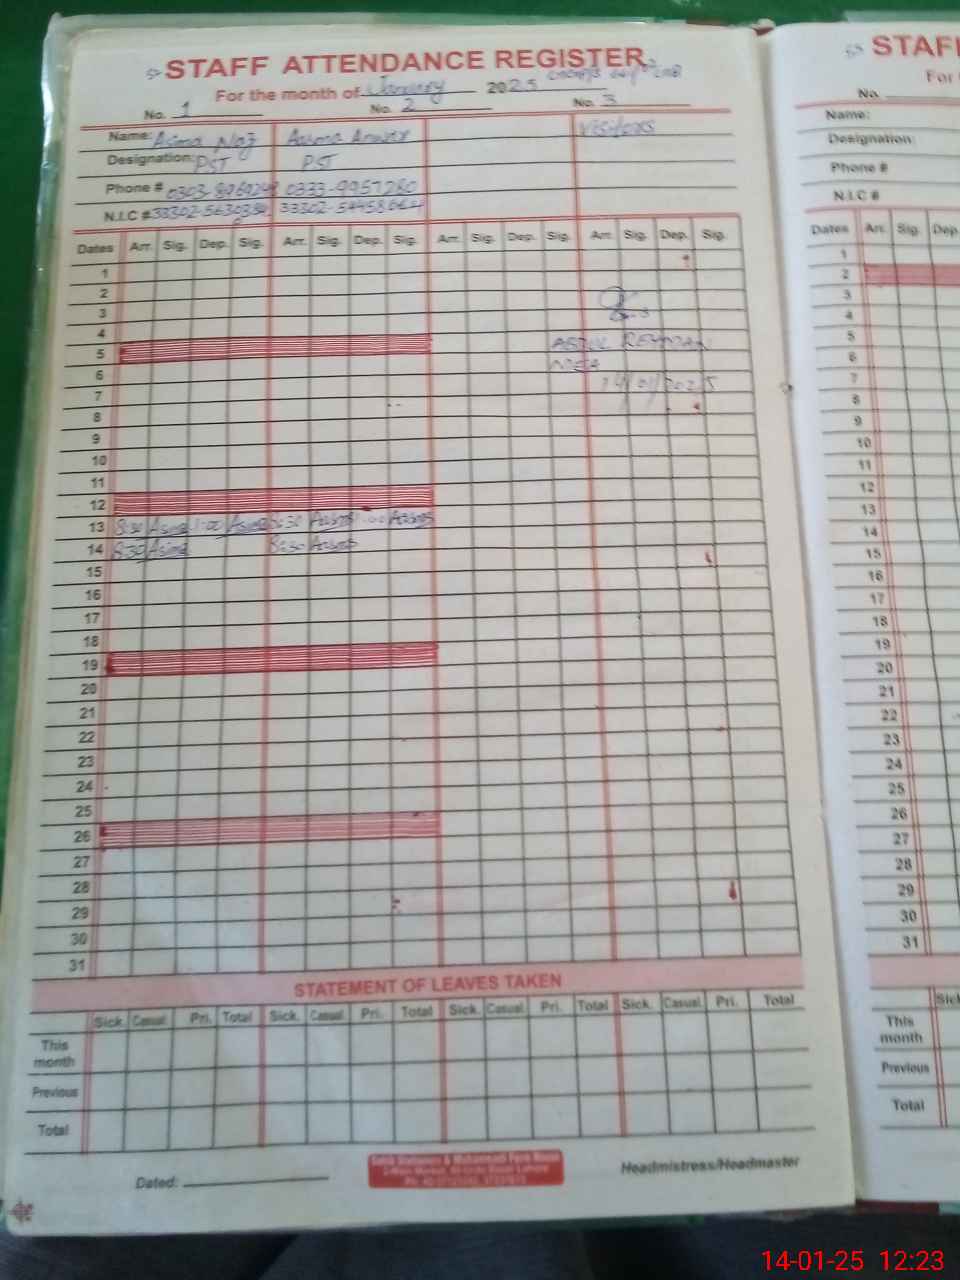 STAFF ATTENDANCE REGISTER
For the month of January 2025
No. 1 No. 2 No. 3
Name: Asima Naz Aasma Anwar Visitors
Designation: PST PST
Phone # 0333-9957280
N.I.C #
Dates Arr. Sig. Dep. Sig. Arr. Sig. Dep. Sig. Arr. Sig. Dep. Sig. Arr. Sig. Dep. Sig.
1
2
3
4
5 ABDUL REHMAN
6 MEA
7 14/01/2025
8
9
10
11
12
13 8:30 Asima 1:00 Asima 8:30 Aasma 1:00 Aasma
14 8:30 Asima 8:30 Aasma
15
16
17
18
19
20
21
22
23
24
25
26
27
28
29
30
31
STATEMENT OF LEAVES TAKEN
Sick. Casual. Pri. Total Sick. Casual. Pri. Total Sick. Casual. Pri. Total Sick. Casual. Pri. Total
This month
Previous
Total
Dated: Headmistress/Headmaster
STAF
For
No.
Name:
Designation:
Phone #
N.I.C #
Dates Arr. Sig. Dep.
1
2
3
4
5
6
7
8
9
10
11
12
13
14
15
16
17
18
19
20
21
22
23
24
25
26
27
28
29
30
31
Sick
This month
Previous
Total
14-01-25 12:23